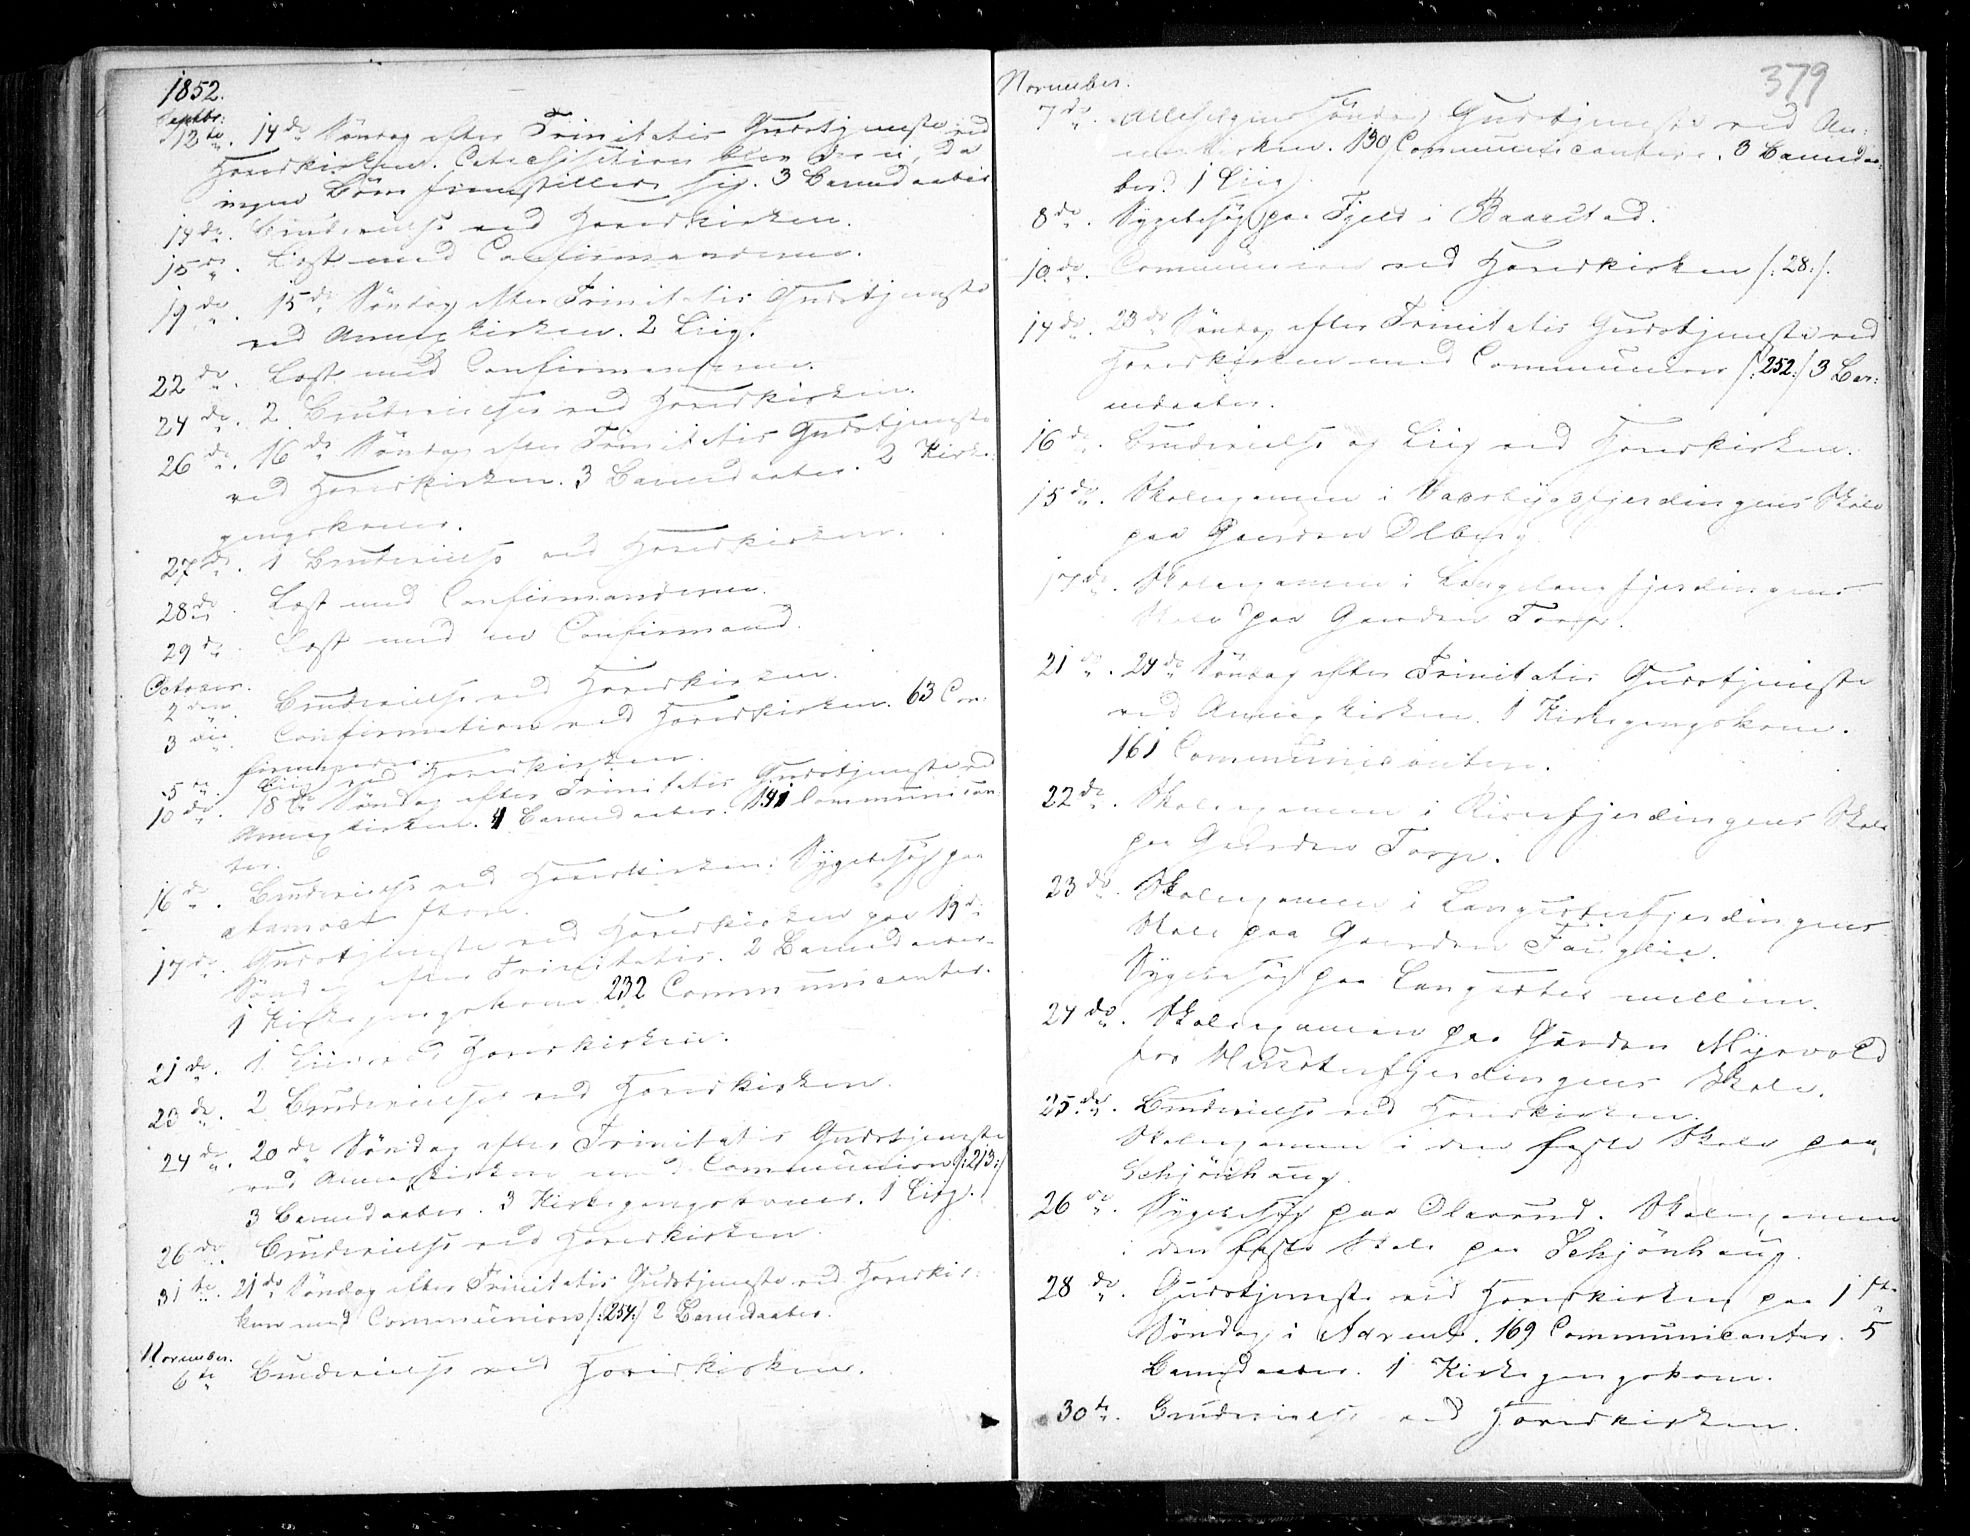 1852.
Septbr:
12te. 14de Søndag efter Trinitatis Gudstjeneste ved
Hovedkirken. Catechisation blev der ei, da
ingen Børn fremstillede sig. 3 Barnedaaber
14de. Brudevielse ved Hovedkirken.
15de. Læst med Confirmanderne.
19de. 15de Søndag efter Trinitatis Gudstjeneste
ved Annexkirken. 2 Liig.
22de. Læst med Confirmanderne.
24de. 2 Brudevielser ved Hovedkirken.
26de. 16de Søndag efter Trinitatis Gudstjeneste
ved Hovedkirken. 3 Barnedaaber. 2 Kirke:
gangskoner.
27de. 1 Brudevielse ved Hovedkirken.
28de. Læst med Confirmanderne.
29de. Læst med en Confirmand.
October.
2den Brudevielse ved Hovedkirken.
3die. Confirmation ved Hovedkirken. 63 Con:
firmander.
5te. Liig ved Hovedkirken.
10de. 18de Søndag efter Trinitatis Gudstjeneste ved
Annexkirken. 4 Barnedaaber. 141 Communican:
ter.
16de. Brudevielse ved Hovedkirken. Sygebesøg paa
17de. Gudstjeneste ved Hovedkirken paa 19de
Søndag efter Trinitatis. 2 Barnedaaber.
1 Kirkegangskone 232 Communicanter.
21de. 1 Liig ved Hovedkirken.
23de. 2 Brudevielser ved Hovedkirken.
24de. 20de Søndag efter Trinitatis Gudstjeneste
ved Annexkirken med Communion /:213:/
3 Barnedaaber. 3 Kirkegangskoner. 1 Liig.
26de. Brudevielse ved Hovedkirken.
31te. 21de Søndag efter Trinitatis Gudstjeneste ved Hovedkir:
ken med Communion /:254:/ 2 Barnedaaber.
November.
6te Brudevielse ved Hovedkirken.
379
November.
7de. Allehelgenssøndag Gudstjeneste ved An:
nexkirken. 130 Communicanter. 3 Barnedaa:
ber. 1 Liig.
8de. Sygebesøg paa Fjeld i Baastad.
10de. Communion ved Hovedkirken /:28:/.
14de. 23de Søndag efter Trinitatis Gudstjeneste ved
Hovedkirken med Communion /:252:/ 3 Bar:
nedaaber.
16de. Brudevielse og Liig ved Hovedkirken.
15de. Skoleexamen i Skole
paa Gaarden Olberg
17de. Skoleexamen i
Skole paa Gaarden Torp.
21de. 24de Søndag efter Trinitatis Gudstjeneste
ved Annexkirken. 1 Kirkegangskone.
161 Communicanter.
22de. Skoleexamen i Skole
paa Gaarden Torp.
23de. Skoleexamen i Langsæterfjerdingens
Skole paa Gaarden Fauglie.
Sygebesøg paa Langsæter mellem.
24de. Skoleexamen paa Gaarden Myrvold
for Skole.
25de. Brudevielse ved Hovedkirken.
Skoleexamen i den faste Skole paa
Schjønhaug.
26de. Sygebesøg paa Skoleexamen
i den faste Skole paa Schjønhaug.
28de. Gudstjeneste ved Hovedkirken paa 1ste
Søndag i Advent. 169 Communicanter. 5
Barnedaaber. 1 Kirkegangskone.
30te. Brudevielse ved Hovedkirken.